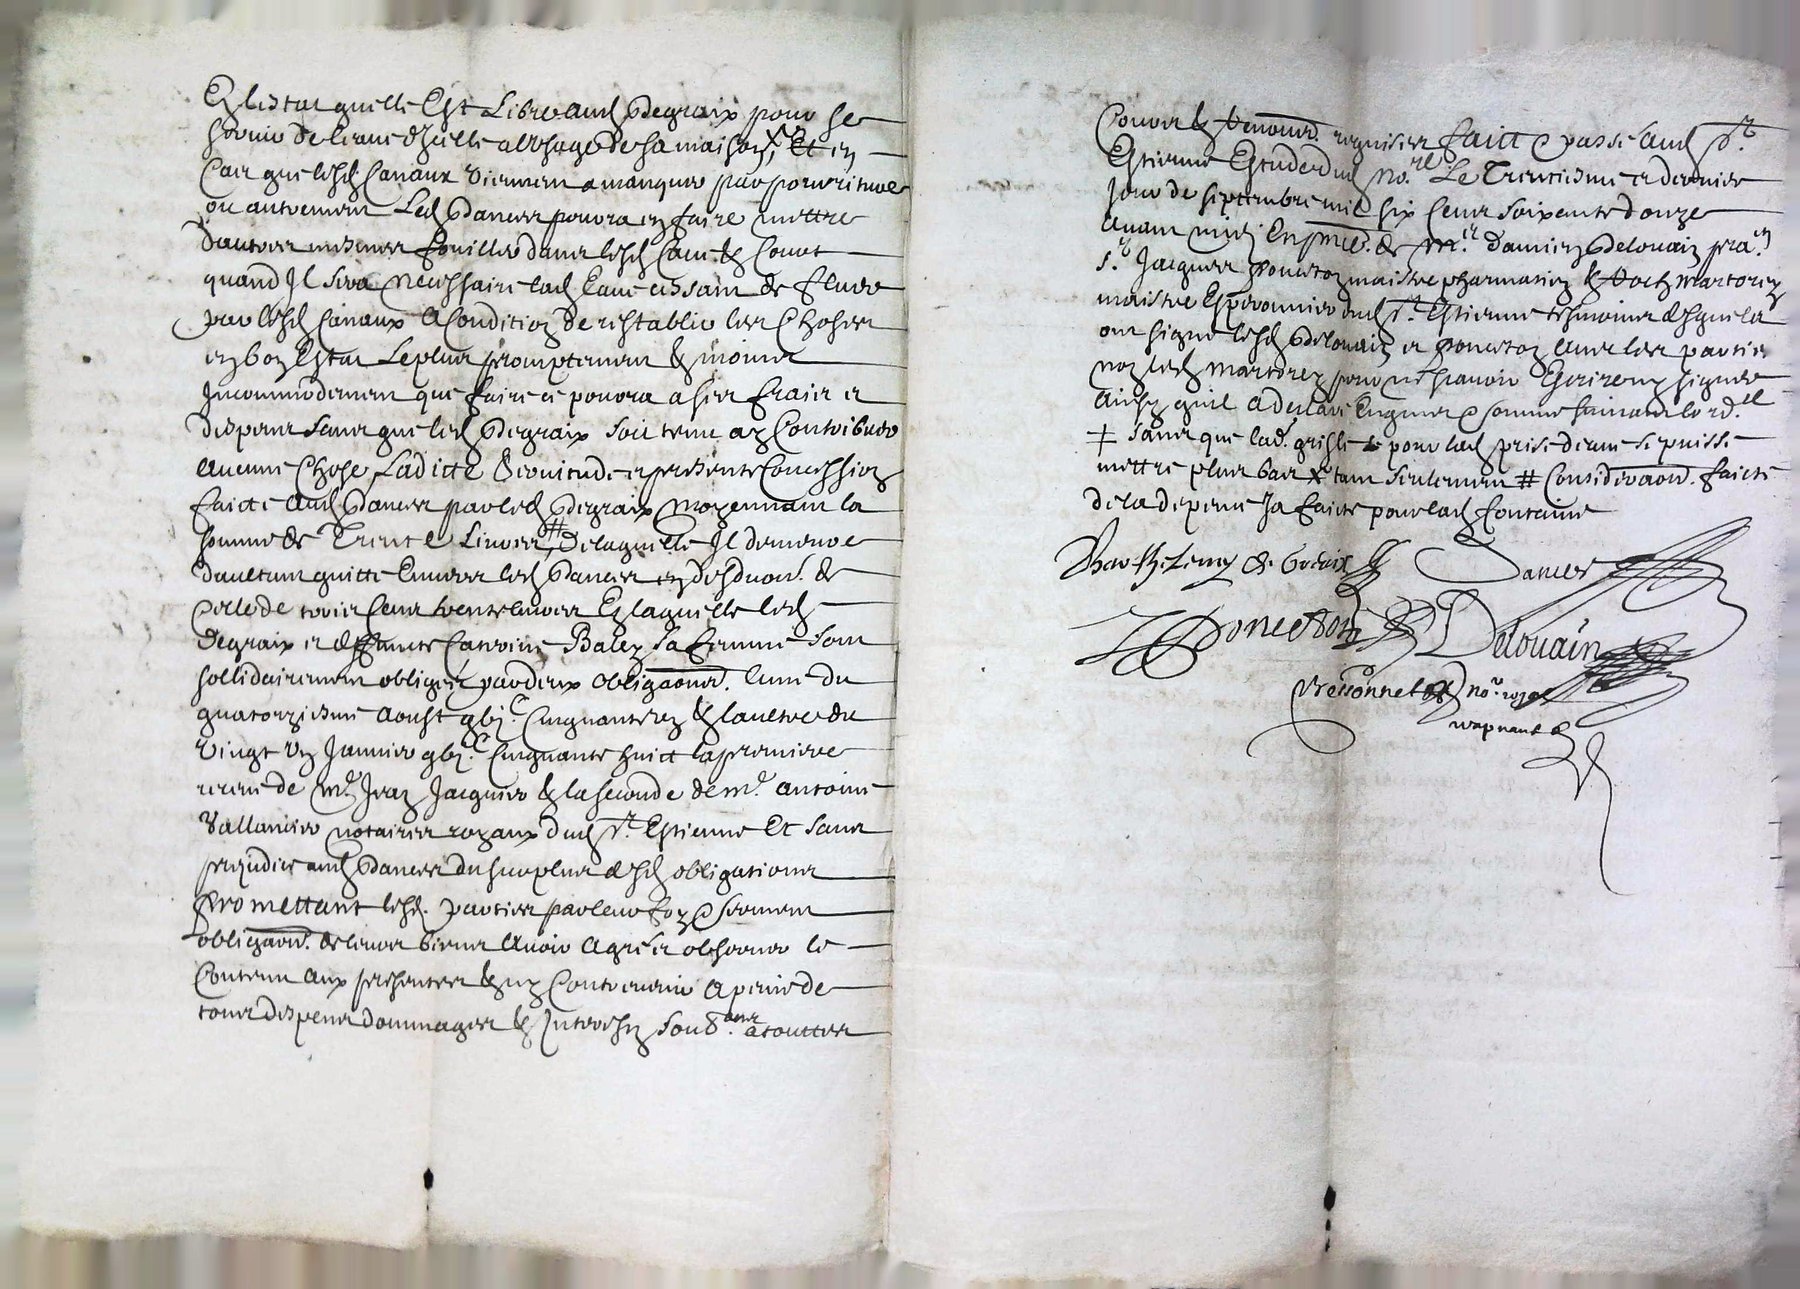 En lestat quelle Est Libre aud Degraix pour se
servir de leaue dIcelle a lusage de sa maison, Et en
Cas que lesd Canaux viennent a manquer par pourriture
ou autrement Led Dances pourra en faire mettre
dautres mesmes fouiller dans lesd Cave & Court
quand Il sera necessaire lad Eaue cessant de fluer
par lesd Canaux a Condition de restablir les Choses
en bon Estat Le plus promptement & moings
Incommodement que faire ce pourra a ses fraix et
despens sans que led Degraix soit tenu a y Contribuer
aucune Chose, Laditte Servitude et presente Concession
faicte aud Dances par led Degraix Moyennant la
somme de Trente Livres, # de laquelle Il demeure
daultant quitte Envers led Dances en desduon. de
Celle de trois Cens trente livres En laquelle led
Degraix et deffuncte Caterine Baley sa femme sont
sollidairement obliges par deux obligaons. lune du
quatorziesme Aoust gbjc. Cinquante & laultre du
Vingt Un Janvier gbjc. Cinquante huict la premiere
receue de Me. Jean Jacquier & la seconde de Me. Antoine
Vallancier Notaires royaux dud St. Estienne Et sans
prejudice aud Dances du surplus desd obligations
Promettant lesd. parties par leur foy & serment
obligaon. de leurs biens Avoir Agreer observer le
Contenu aux presentes & ny Contrevenir A peine de
tous despens dommages & Interestz soubons. a touttes
Cours & Renons. requises faict & passé aud St.
Estienne Estude dud No.re Le Trentiesme et dernier
Jour de Septembre mil six Cens soixante douze
avant midi En pnce. de Me. Damien Delouain pran.
Sr. Jacques Ponceton maistre pharmatien & Martorey
maistre Esperonnier dud St. Estienne tesmoins desquels
ont signé lesd Delouain et Ponceton Avec les parties
non led Martorey pour ne scavoir Escrire ny signer
Ainsy quil a desclaré Enquis & sommé suivant lord.ce
+ sans que lad. grisle pour lad prise deaue se puisse
mettre plus bas X tant seulement # Consideraon. faicte
de la despense Ja faicte pour lad fontaine
Barthelemy de Graix Dances
Ponceton Delouain
Pressonnet No.re royal